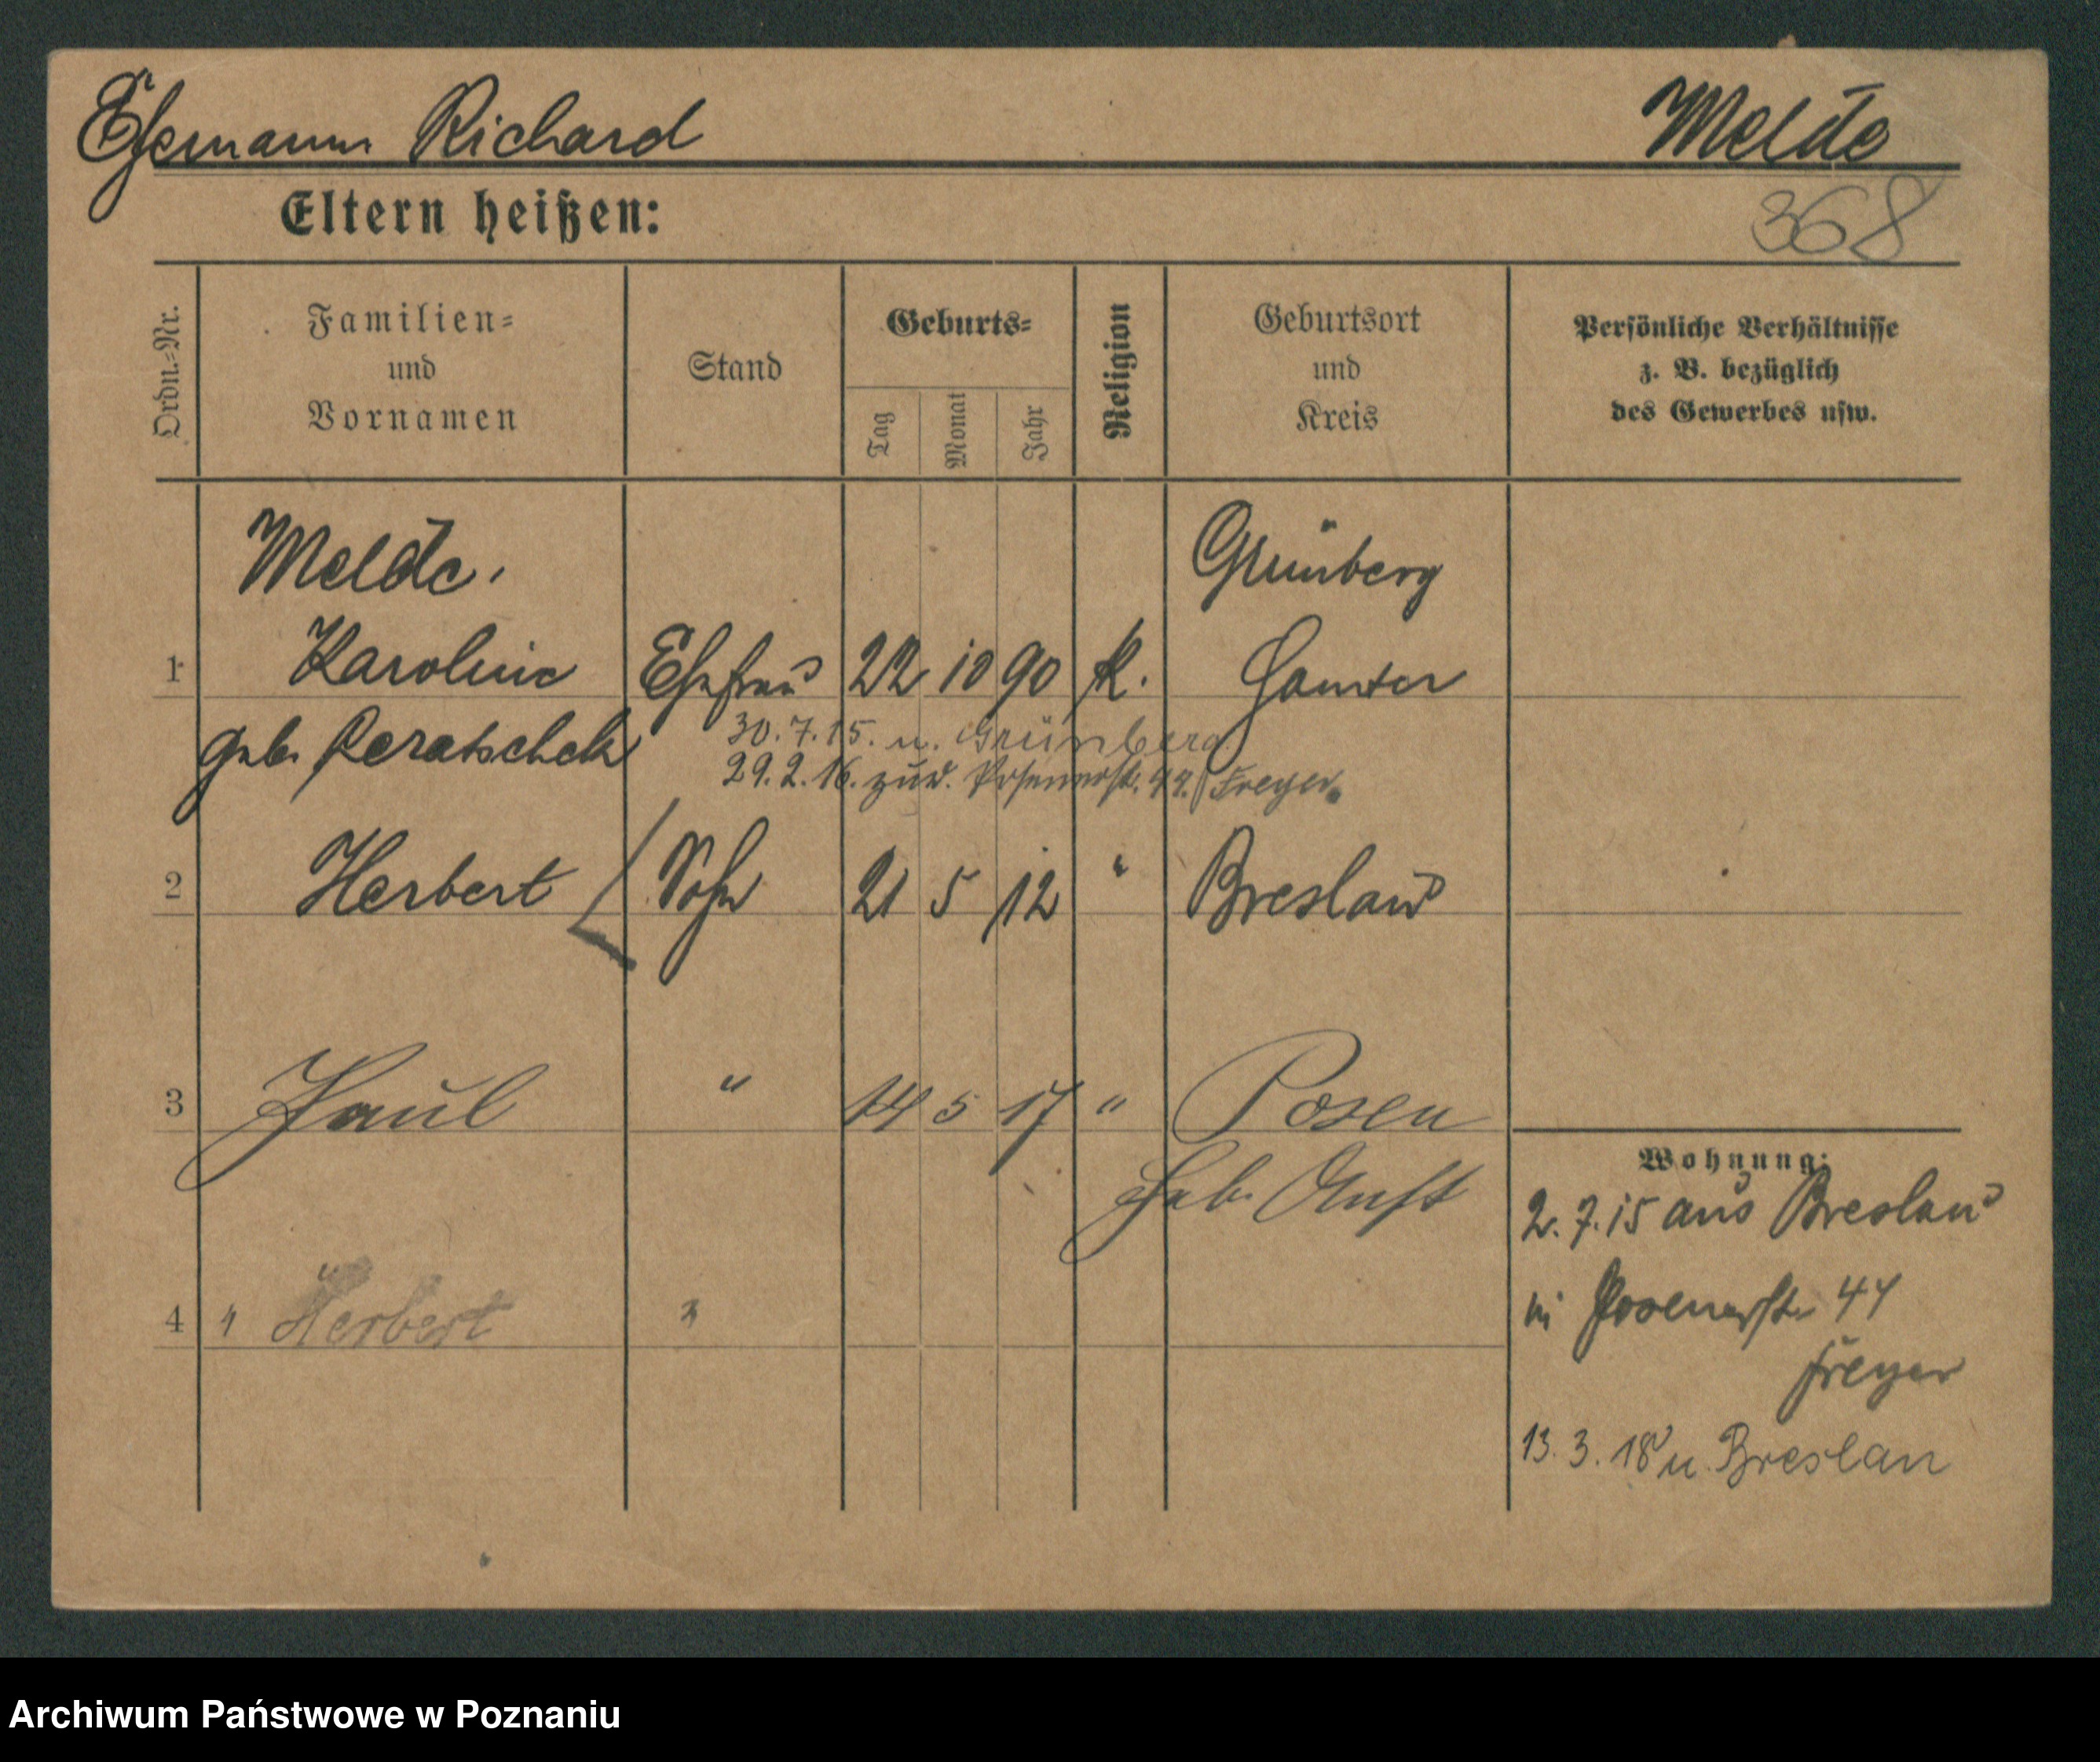 Ehemann Richard Melde
368
Eltern heißen:
Ordn.-Nr. Familien- und Vornamen Stand Geburts- Tag Monat Jahr Religion Geburtsort und Kreis Persönliche Verhältnisse z. B. bezüglich des Gewerbes usw.
Melde. Grünberg
1 Karoline Ehefrau 22 10 90 K. Samter
geb. Peratschek
30.7.15. n. Grünberg
29.2.16. zur. Posenerstr. 44. Freyer.
2 Herbert Sohn 21 5 12 " Breslau
3 Paul " 14 5 17 " Posen
Heb. Anst
4 " Herbert "
Wohnung:
2.7.15 aus Breslau
in Posenerstr 44
Freyer
13.3.18 n. Breslau
Archiwum Państwowe w Poznaniu